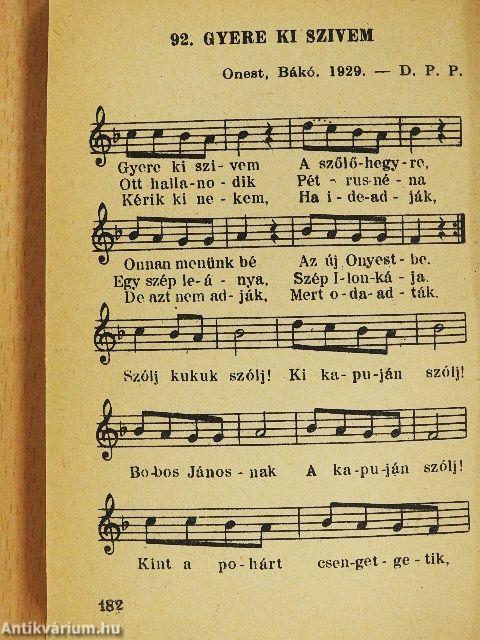 92. GYERE KI SZIVEM
Onest, Bákó. 1929. — D. P. P.
Gyere ki szi-vem A szőlő-hegy-re,
Ott halla-no-dik Pét-rus-né-na
Kérik ki ne-kem, Ha i-de-ad-ják,
Onnan menünk bé Az új Onyest-be.
Egy szép le-á-nya, Szép I-lon-ká-ja.
De azt nem ad-ják, Mert o-da-ad-ták.
Szólj kukuk szólj! Ki ka-pu-ján szólj!
Bo-bos János-nak A ka-pu-ján szólj!
Kint a po-hárt csen-get-ge-tik,
182
Antikvárium.hu